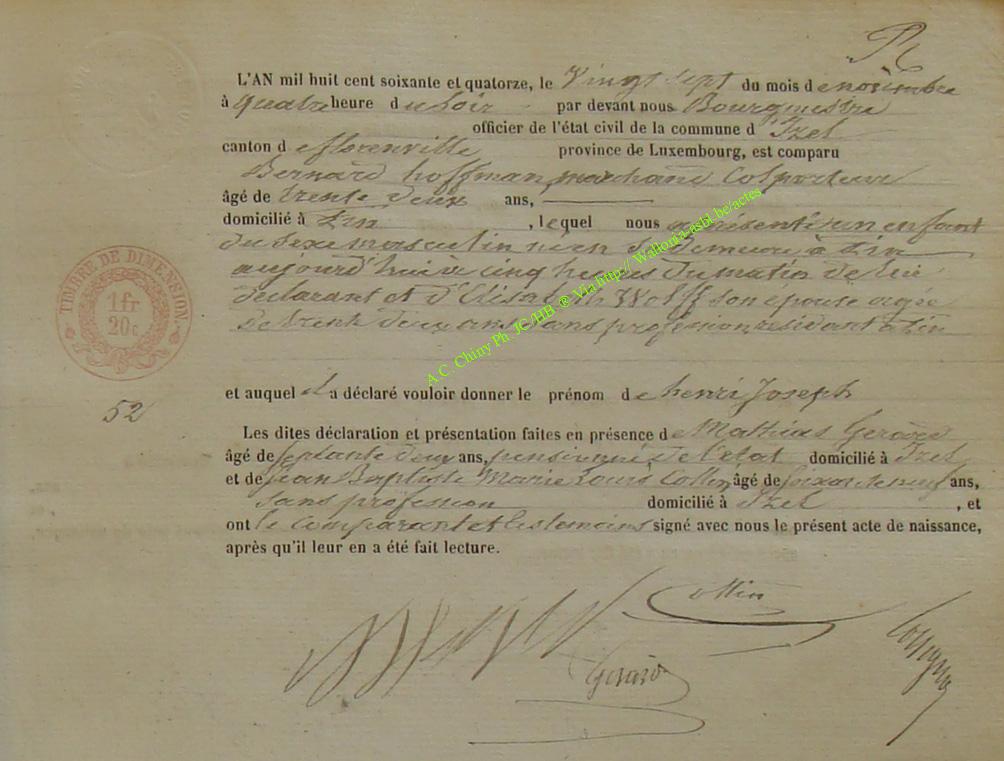 L'AN mil huit cent soixante et quatorze, le Vingt sept du mois de novembre
à quatre heure du soir par devant nous Bourgmestre
officier de l'état civil de la commune d'Izel
canton de florenville province de Luxembourg, est comparu
Bernard hoffman, marchand Colporteur
âgé de trente deux ans,
domicilié à , lequel nous a présenté un enfant
du sexe masculin né en Sa demeure à
aujourd'hui à cinq heures du matin de lui
déclarant et d'Elisabeth Wolff son épouse agée
de trente deux ans, sans profession résidant à
et auquel il a déclaré vouloir donner le prénom de henri Joseph
52
Les dites déclaration et présentation faites en présence de Mathias Gerard
âgé de septante deux ans, pensionné de l'état domicilié à Izel
et de Jean Baptiste Marie Louis Collin âgé de soixante neuf ans,
sans profession domicilié à Izel , et
ont le Comparant et les temoins signé avec nous le présent acte de naissance,
après qu'il leur en a été fait lecture.
Collin
Gerard
TIMBRE DE DIMENSION
1 fr
20 c
A.C. Chiny Ph. JC/HB. ® Via http://Wallonia-asbl.be/actes.